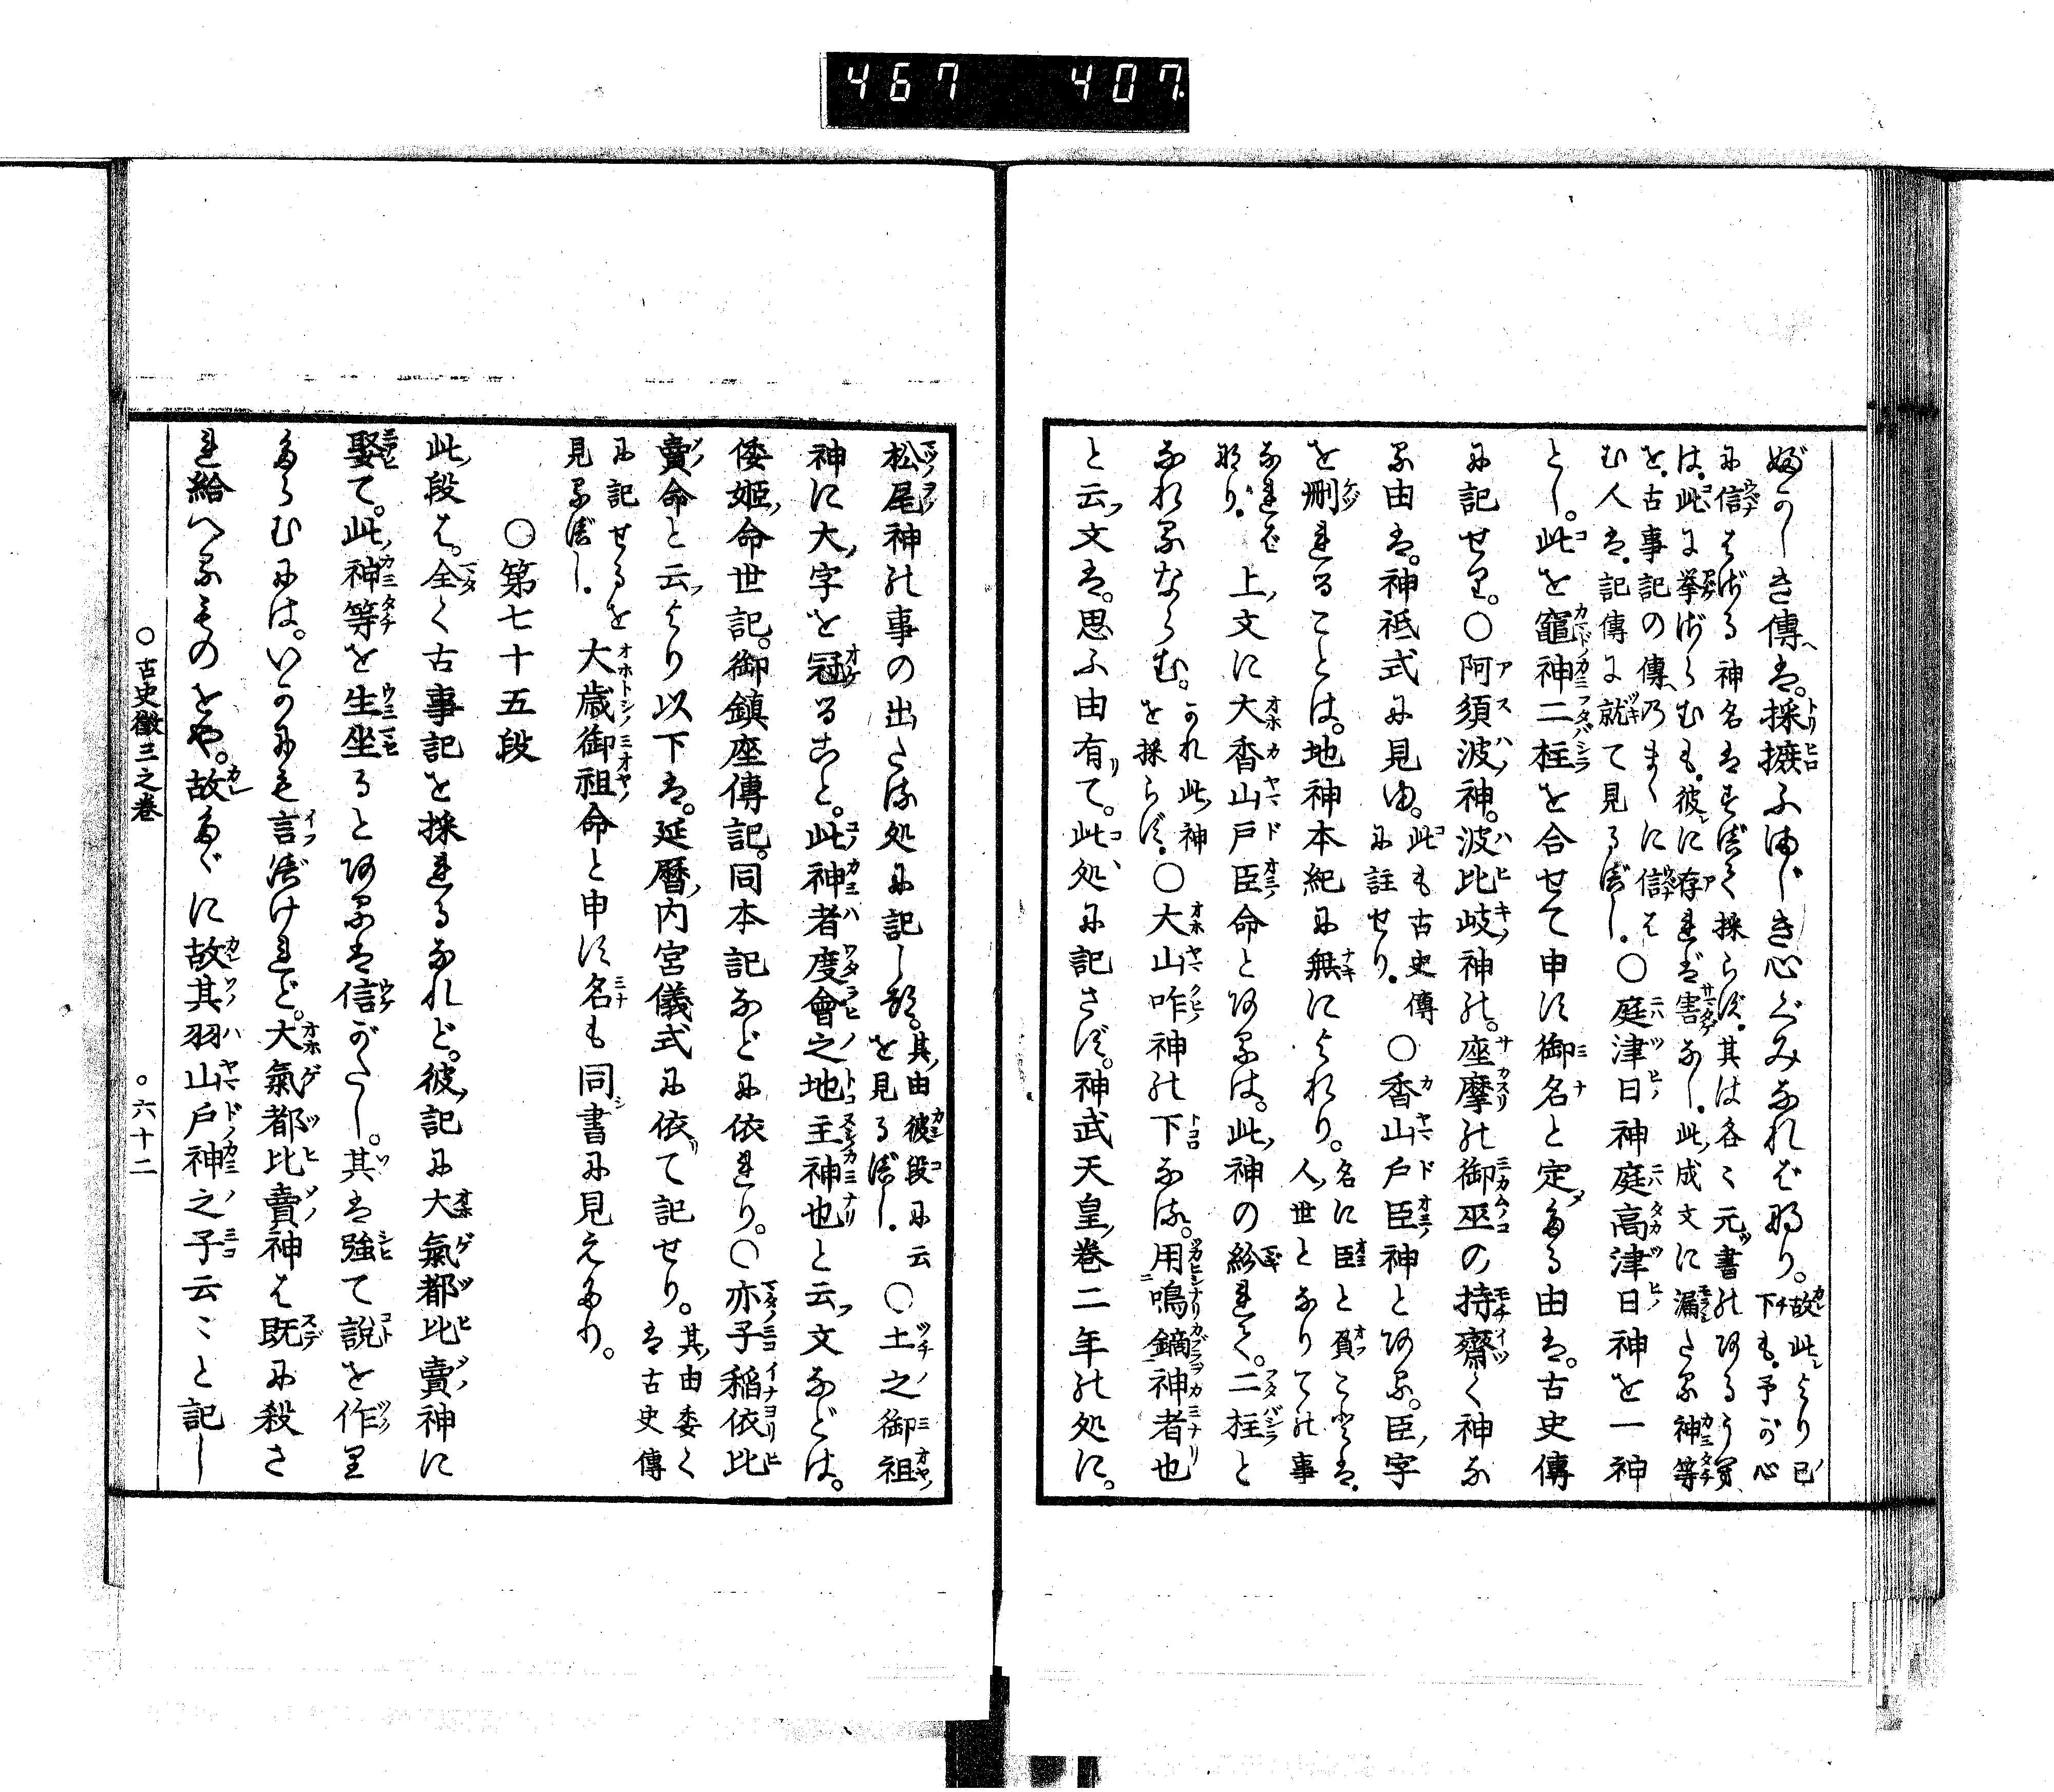 467 407
嫉かしき傳は。採擴ふまじき心ぐみなれば那り。故此より下も。予が心
に信はざる神名はすべて採らず。其は各々元書のあるうへ
は。此に挙ざらむも。彼に存れば害なし。此成文に漏たる神等
を。古事記の傳乃まゝに信は
む人は。記傳に就て見るべし。○庭津日神庭高津日神を一神
とし。此を竈神二柱を合せて申す御名と定たる由は。古史傳
に記せり。○阿須波神。波比岐神の。座摩の御巫の持齋く神な
る由は。神祇式に見ゆ。此も古史傳に註せり。○香山戸臣神とある。臣字
を刪れることは。地神本紀に無によれり。名に臣と負ことは。人世となりての事
なれば那り。上文に大香山戸臣命とあるは。此神の紛れて。二柱と
なれるならむ。かれ此神を採らず。○大山咋神の下なる。用鳴鏑神者也
と云文は。思ふ由有て。此処に記さず。神武天皇巻二年の処に。
松尾神の事の出たる処に記しぬ。其由彼段に云を見るべし。○土之御祖
神に大字を冠ること。此神者度會之地主神也と云文などは。
倭姫命世記。御鎮座傳記。同本記などに依れり。○亦子稲依比
賣命と云より以下は。延暦内宮儀式に依て記せり。其由委く
は古史傳
に記せるを見るべし。大歳御祖命と申す名も同書に見えたり。
○第七十五段
此段は。全く古事記を採れるなれど。彼記に大氣都比賣神に
娶て。此神等を生坐るとあるは信がたし。其は強て説を作り
たらむには。いかにも言べけれど。大氣都比賣神は既に殺さ
れ給へるものをや。故たゞに故其羽山戸神之子云々と記し
○古史徴三之巻 ○六十二